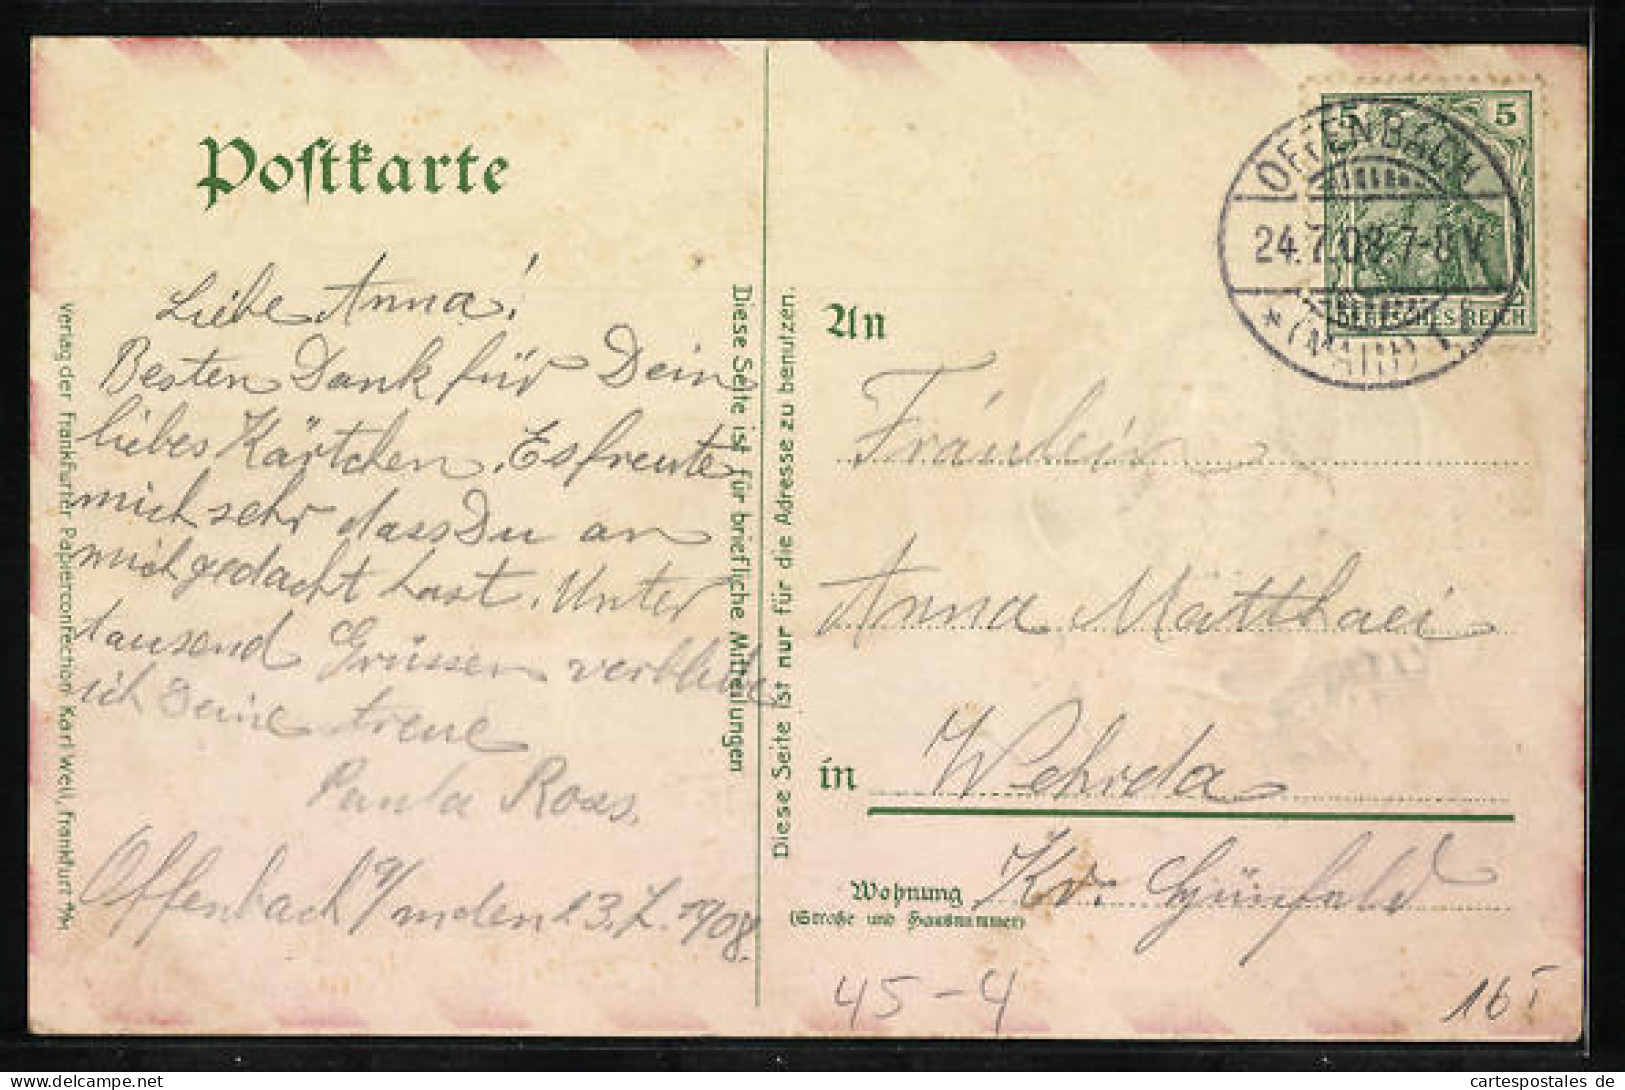 Postkarte
Liebe Anna!
Besten Dank für Dein
liebes Kärtchen. Es freute
mich sehr dass Du an
mich gedacht hast. Unter
tausend Grüssen verbleibe
ich Deine treue
Paula Ross.
Offenbach a/m den 23.7.1908.
Verlag der Frankfurter Papierconfection Karl Weil, Frankfurt a/M.
Diese Seite ist für briefliche Mitteilungen
Diese Seite ist nur für die Adresse zu benutzen.
5 5
DEUTSCHES REICH
OFFENBACH
24.7.08.7-8V.
* (MAIN) 1
An
Fräulein
Anna Matthaei
in Wehrda
Wohnung Kr. Hünfeld
(Straße und Hausnummer)
45-4
16
cartespostales de